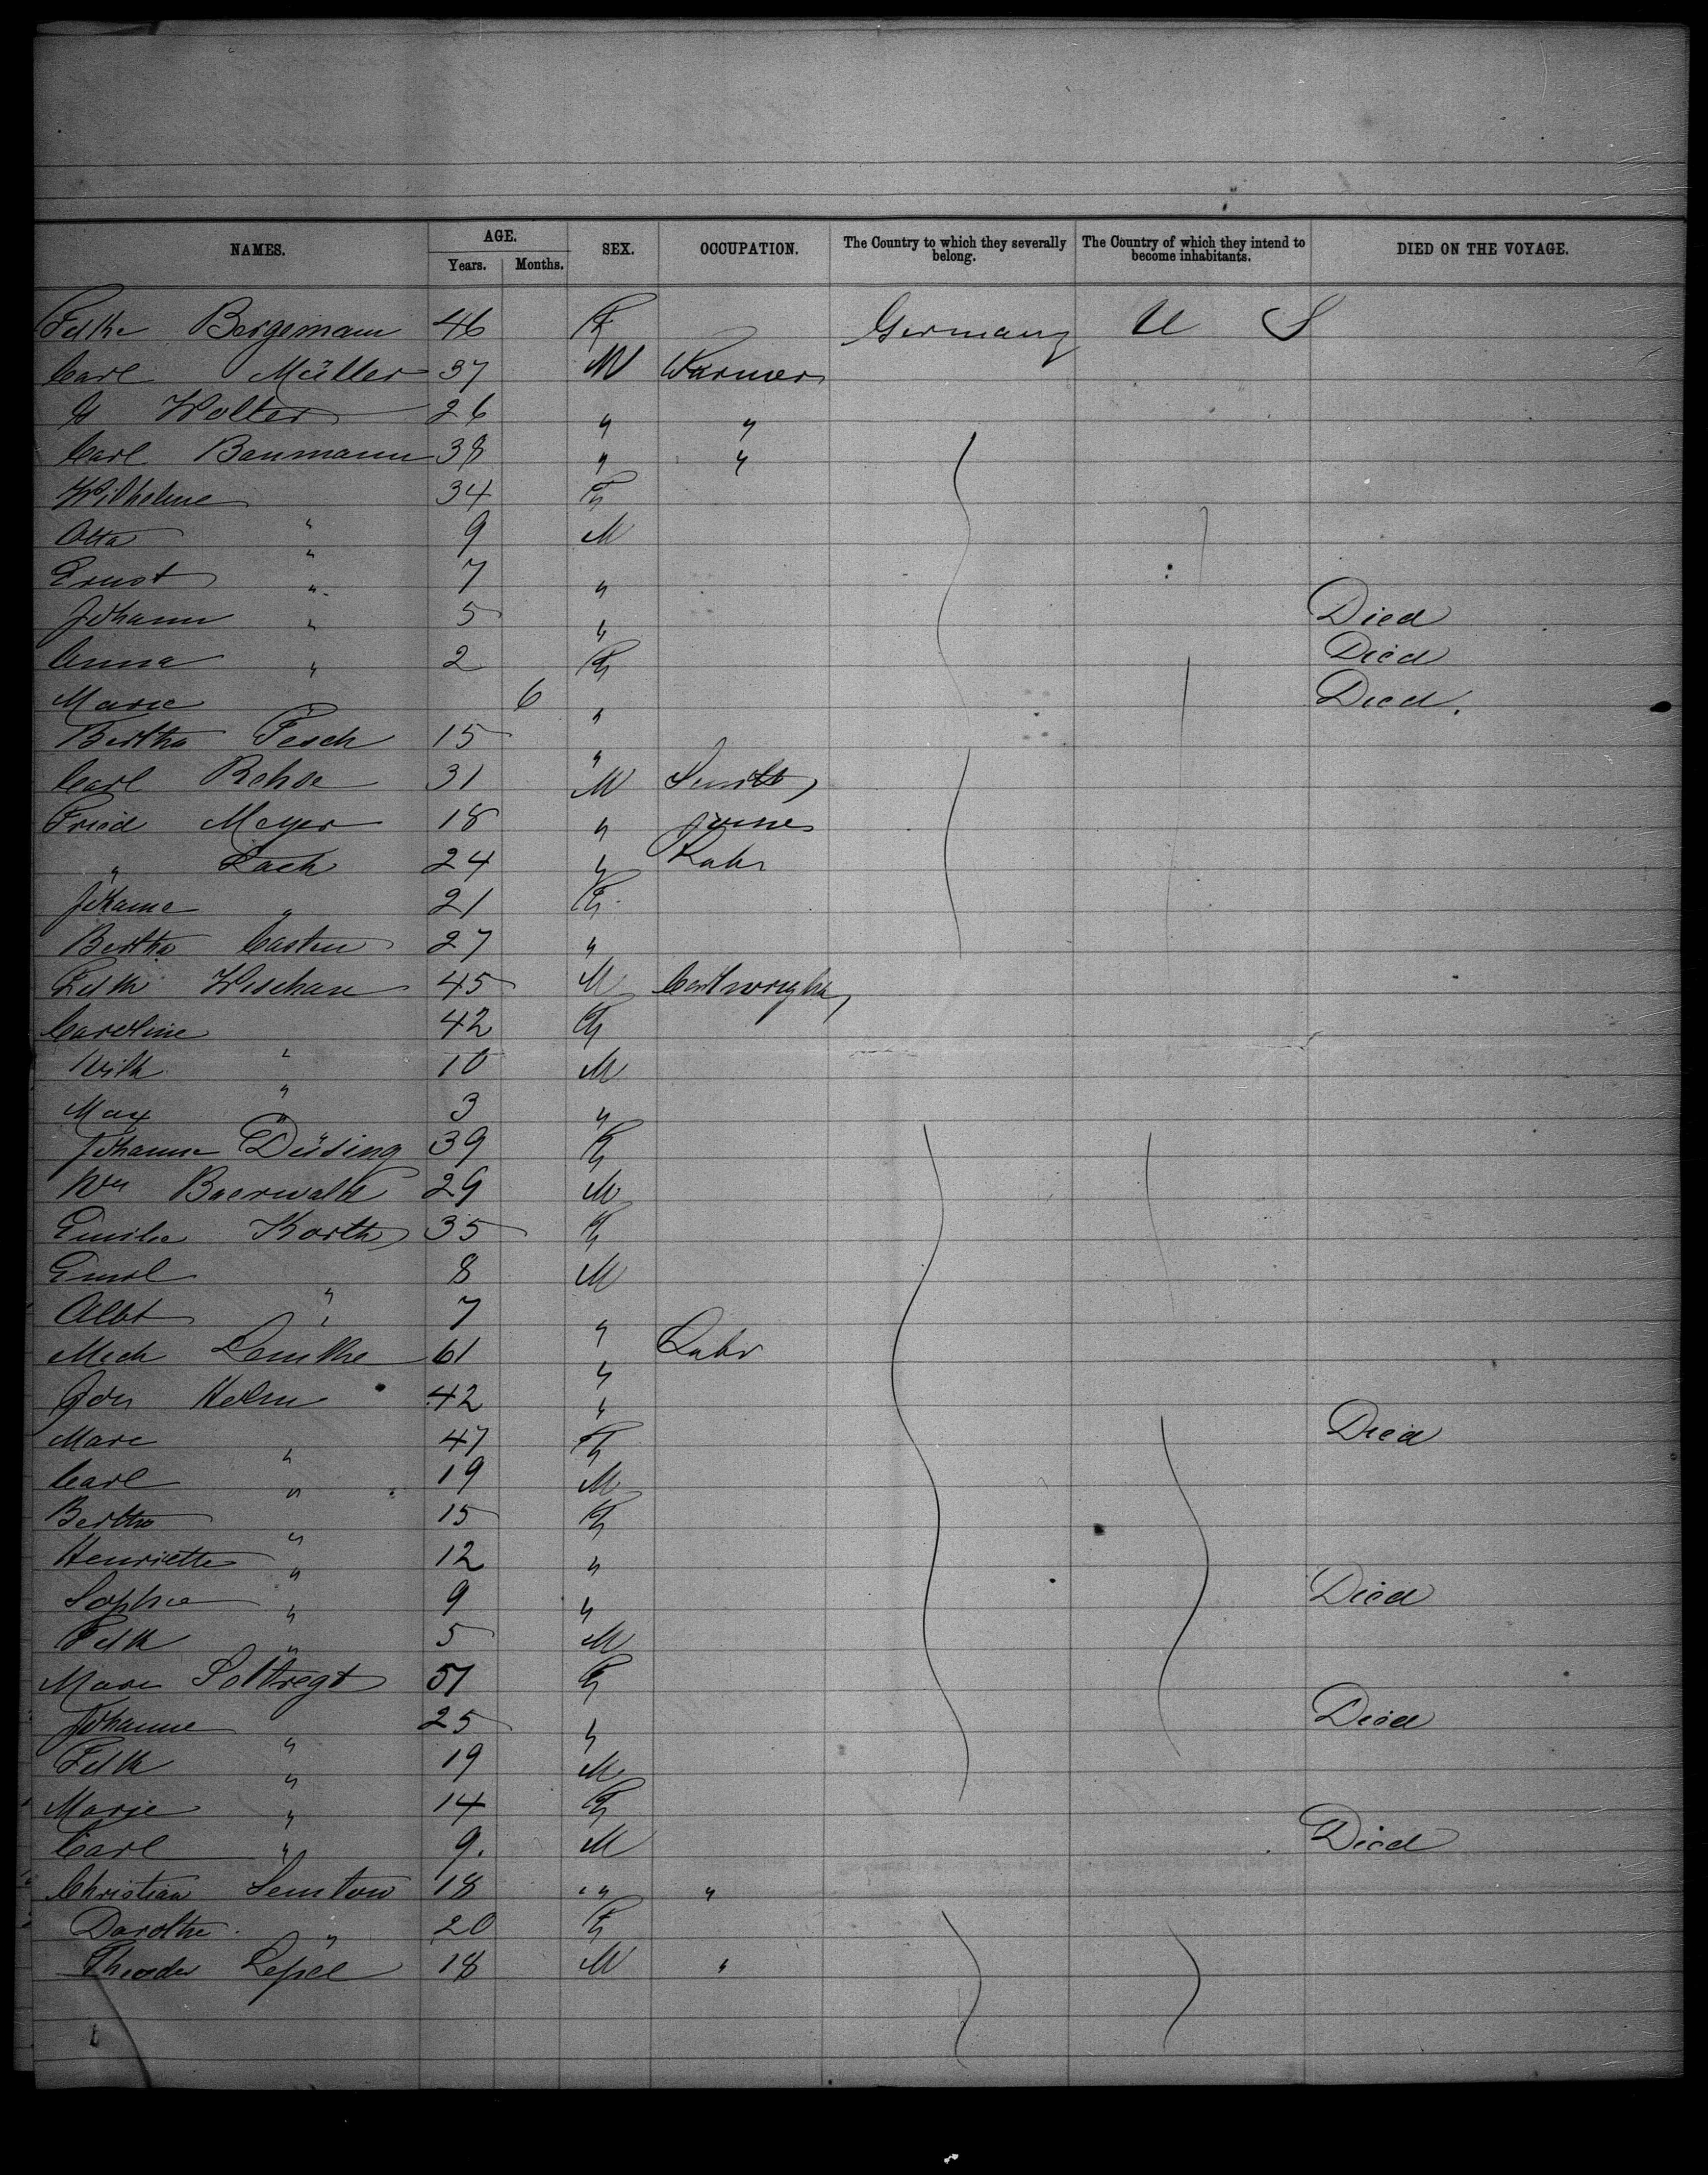 NAMES. AGE. SEX. OCCUPATION. The Country to which they severally belong. The Country of which they intend to become inhabitants. DIED ON THE VOYAGE.
Years. Months.
Bergemann 46 F Germany U S
Carl Müller 37 M Farmer
Wolter 26 " "
Carl Baumann 38 " "
Wilhelmine 34 F
Otto " 9 M
Ernst " 7 "
Johann " 5 " Died
Anna " 2 F Died
Marie " 6 " Died.
Bertha Pesch 15 "
Carl Rehse 31 M Smith
Fried Meyer 18 "
" Lack 24 " Labr
Johanne " 21 F
Bertha Casten 27 "
45 M Cartwright
Caroline 42 F
Wilh " 10 M
Max " 3 "
Johanne Düsing 39 F
Wm Baerwald 29 M
Emilie Korth 35 F
Emil " 8 M
Albt " 7 "
Mich Lemthe 61 " Labr
Joh Holm 42 "
Marie " 47 F Died
Carl " 19 M
Bertha " 15 F
Henriette " 12 "
Sophie " 9 " Died
Fdk " 5 M
Marie Soltregt 51 F
Johanne " 25 " Died
Fdk " 19 M
Marie " 14 F
Carl " 9. M Died
Christian Semtow 18 " "
Dorothe " 20 F
Theodor Lepel 18 M "